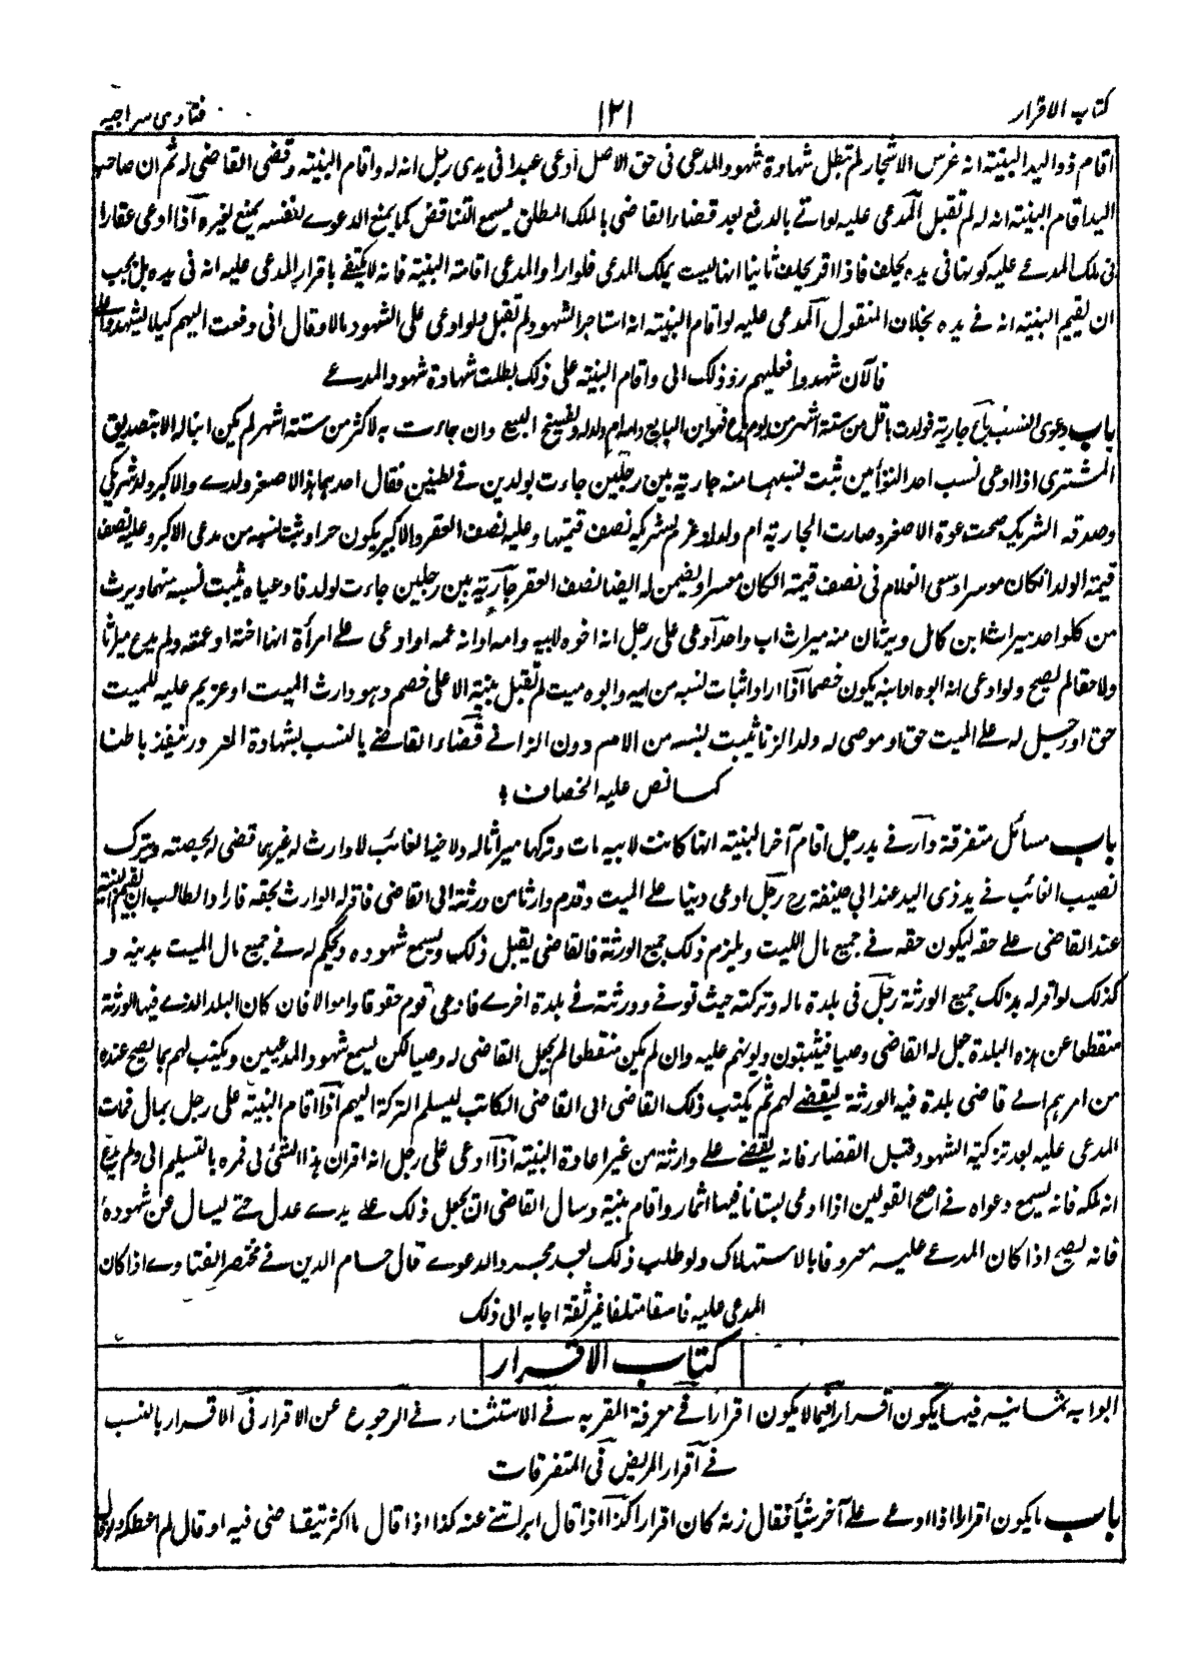 كتاب الاقرار
١٢١
فتاوى سراجيه
اقام ذو اليد البينة انه غرس الاشجار لم تبطل شهادة شهود المدعى فى حق الاصل ادعى عبدا فى يدى رجل انه له واقام البينة وقضى القاضى له ثم ان صاحب
اليد اقام البينة انه له لم تقبل المدعى عليه لو اتے بالدفع بعد قضاء القاضى بالملك المطلق يسمع التناقض كما يمنع الدعوے لنفسه يمنع لغيره اذا ادعى عقارا
فى ملك المدعے عليه كونها فى يده يحلف فاذا اقر يحلف ثانيا انها ليست بملك المدعى فلو ارا والمدعى اقامة البينة فانه لا يكتفے باقرار المدعى عليه انه فى يده بل يجب
ان يقيم البينة انه فے يده بخلاف المنقول المدعى عليه لو اقام البينة انه استاجر الشهود لم تقبل ولو ادعى على الشهود مالا وقال انى دفعت اليهم كيلا يشهدوا على
فالآن شهدوا فعليهم رد ذلك الى واقام البينة على ذلك بطلت شهادة شهود المدعے
باب دعوى النسب باع جارية فولدت باقل من ستة اشهر من يوم باع فهو ابن البايع وامه ام ولد له ويفسخ البيع وان جاءت به لاكثر من ستة اشهر لم يكن ابنا له الا بتصديق
المشترى اذا ادعى نسب احد التوأمين ثبت نسبهما منه جارية بين رجلين جاءت بولدين فے بطنين فقال احدهما هذا الاصغر ولدے والاكبر ولد شريكى
وصدقه الشريك صحت دعوة الاصغر وصارت الجارية ام ولد له وغرم لشريكه نصف قيمتها وعليه نصف العقر والاكبر يكون حرا وثبت نسبه من مدعى الاكبر وعليه نصف
قيمة الولد ان كان موسرا وسعى الغلام فى نصف قيمة ان كان معسرا ويضمن له ايضا نصف العقر جارية بين رجلين جاءت لولد فادعياه يثبت نسبه منهما ويرث
من كل واحد ميراث ابن كامل ويرثان منه ميراث اب واحد ادعى على رجل انه اخوه لابيه وامه او انه عمه او ادعى علے امرأة انها اخته او عمته ولم يدع ميراثا
ولا حقا لم يصح ولو ادعى انه ابوه او ابنه يكون خصما اذا اراد اثبات نسبه من ابيه وابوه ميت لم تقبل بينة الا على خصم وهو وارث الميت او غريم عليه للميت
حق او رجل له على الميت حق او موصى له ولد الزنا يثبت نسبه من الام دون الزانے قضاء القاضے بالنسب بشهادة الزور ينفذ باطنا
كما نص عليه الخصاف ؛
باب مسائل متفرقة دار فے يد رجل اقام آخر البينة انها كانت لابيه مات وتركها ميراثا له ولاخيه الغائب لا وارث له غيرهما قضى له بحصته ويترك
نصيب الغائب فے يد ذى اليد عند ابى حنيفة رح رجل ادعى دينا علے الميت وقدم وارثا من ورثته الى القاضى فاقر له الوارث بحقه فاراد الطالب ان يقيم البينة
عند القاضى علے حقه ليكون حقه فے جميع مال الميت ويلزم ذلك جميع الورثة فالقاضى يقبل ذلك ويسمع شهوده ويحكم له فے جميع مال الميت بدينه و
كذلك لو اقر له بذلك جميع الورثة رجل فى بلدة ماله وتركته حيث توفے وورثته فے بلدة اخرے فادعى قوم حقوقا واموالا فان كان البلد الذے فيها الورثة
منقطعا عن هذه البلدة جعل له القاضى وصيا فيثبتون ديونهم عليه وان لم يكن منقطعا لم يجعل القاضى له وصيا لكن يسمع شهود المدعيين ويكتب لهم بما يصح عنده
من امرهم الے قاضى بلدة فيه الورثة ليقضے لهم ثم يكتب ذلك القاضى الى القاضى الكاتب ليسلم التركة اليهم اذا اقام البينة على رجل بمال فمات
المدعى عليه بعد تزكية الشهود وقبل القضاء فانه يقضے علے وارثه من غير اعادة البينة اذا ادعى على رجل انه اقر ان هذا الشئ لى فمره بالتسليم الى ولم يدع
انه ملكه فانه يسمع دعواه فے اصح القولين اذا ادعى بستانا فيها اثمار واقام بينة وسال القاضى ان يجعل ذلك علے يدے عدل حتے يسال عن شهوده
فانه يصح اذا كان المدعے عليه معروفا بالاستهلاك ولو طلب ذلك بعد مجرد الدعوے قال حسام الدين فے مختصر الفتاوے اذا كان
المدعى عليه فاسقا متلفا غير ثقة اجابه الى ذلك
كتاب الاقرار
ابوابه ثمانية فيما يكون اقرارا فيما لا يكون اقرارا فے معرفة المقر به فے الاستثناء فے الرجوع عن الاقرار فى الاقرار بالنسب
فے اقرار المريض فى المتفرقات
باب ما يكون اقرارا اذا ادعے علے آخر شيأ فقال زنه كان اقرارا كذا اذا قال ابرأتنے عنه كذا اذا قال ما اكثر تتقاضى فيه او قال لم اعطكه ولو قال